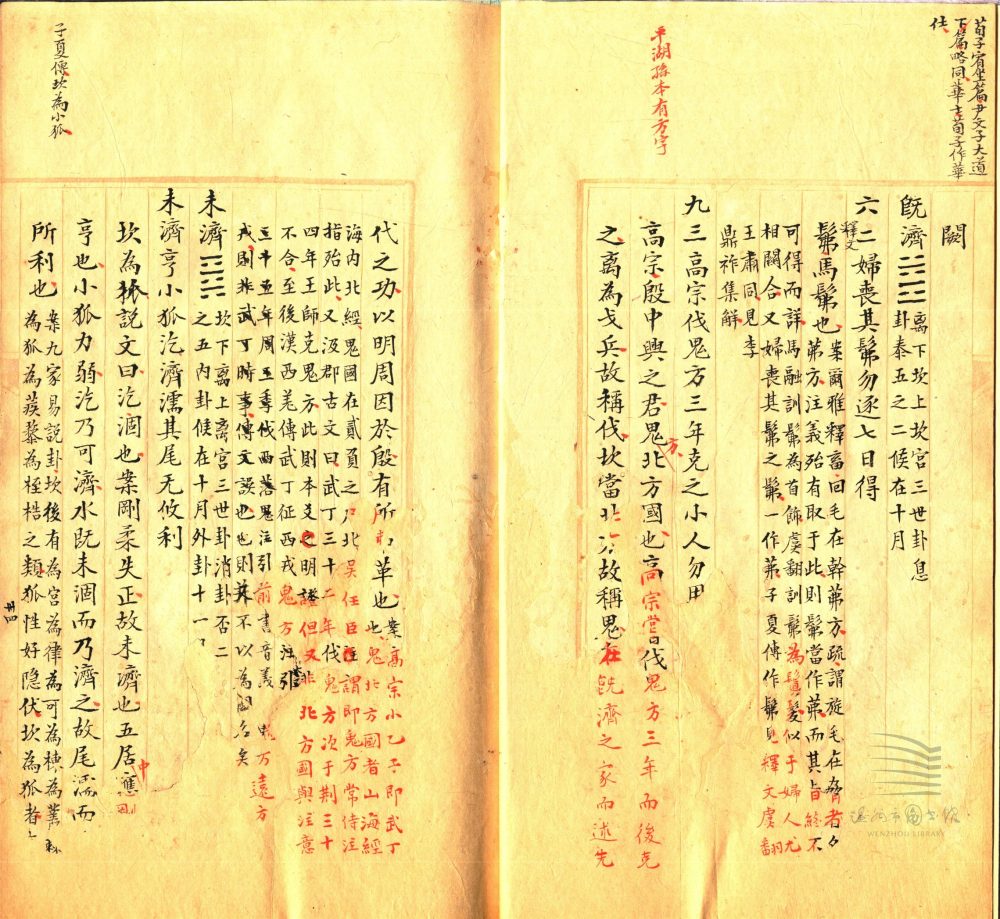 荀子宥坐篇尹文子大道
下篇略同華士荀子作華
仕
平湖孫本有方字
闕
既濟 離下坎上坎宮三世卦息
卦泰五之二候在十月
六二婦喪其髴勿逐七日得
釋文
髴馬髴也 案爾雅釋畜回毛在幹茀方疏謂旋毛在脅者
可得而詳馬融訓髴為首飾虞翻訓髴為鬒髮似于婦人尤
相關合又婦喪其髴之髴一作茀子夏傳作髴見釋文虞翻
王肅同見李
鼎祚集解
九三高宗伐鬼方三年克之小人勿用
高宗殷中興之君鬼北方國也高宗嘗伐鬼方三年而後克
方
之離為戈兵故稱伐坎當北方故稱鬼在既濟之家而述先
子夏傳坎為小狐
代之功以明周因於殷有所 革也 案高宗小乙子即武丁
也鬼北方國者山海經
海內北經鬼國在貳負之尸北吳任臣注謂即鬼方常侍注
指殆此又汲郡古文曰武丁三十二年伐鬼方次于荆三十
四年王師克鬼方此則本爻之明證但又非北方國與注意
不合至後漢西羌傳武丁征西戎鬼方
三十五年周王季伐西落鬼注引前書音義 方遠方
戎則非武丁時事傳文誤也 則 不以為國名矣
未濟 坎下離上離宮三世卦消卦否二
之五內卦候在十月外卦十一
未濟亨小狐汔濟濡其尾无攸利
坎為狐說文曰汔涸也案剛柔失正故未濟也五居
中
亨也小狐力弱汔乃可濟水既未涸而乃濟之故尾濡而
所利也 案九家易說卦坎後有為宮為律為可為棟為叢
為狐為蒺藜為桎梏之類狐性好隱伏坎為狐者
廿四
溫州市圖書館
WENZHOU LIBRARY